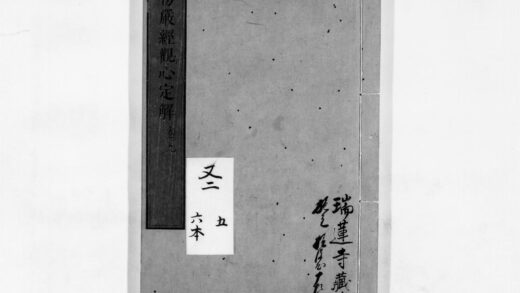 嚴經觀心定解 卷九
又二
五
六本
瑞蓮寺藏